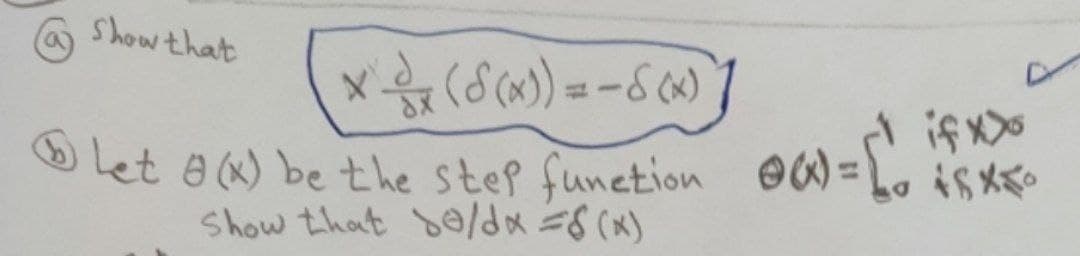 (a) Show that
x ∂/∂x (δ(x)) = -δ(x)
(b) Let θ(x) be the step function θ(x) = { 1 if x>0
0 if x≤0
Show that dθ/dx = δ(x)